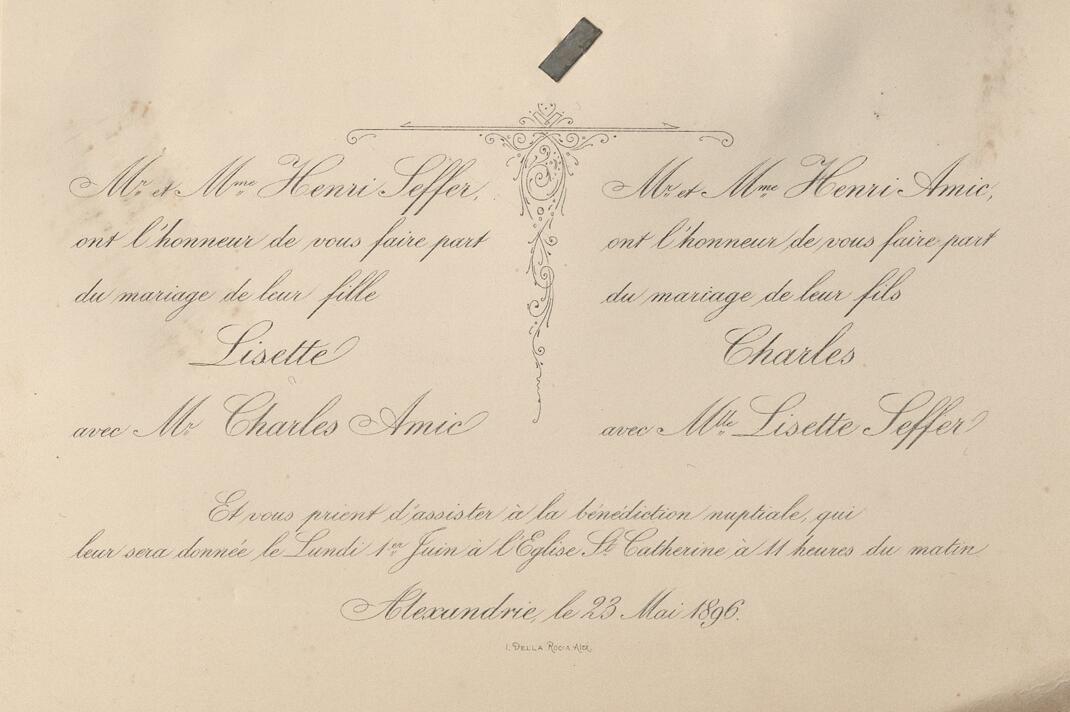 Mr. et Mme Henri Seffer,
ont l'honneur de vous faire part
du mariage de leur fille
Lisette
avec Mr Charles Amic
Mr. et Mme Henri Amic,
ont l'honneur de vous faire part
du mariage de leur fils
Charles
avec Mlle Lisette Seffer
Et vous prient d'assister à la bénédiction nuptiale, qui
leur sera donnée le Lundi 1er Juin à l'Eglise Ste Catherine à 11 heures du matin
Alexandrie, le 23 Mai 1896.
I. DELLA ROCCA ALEX.